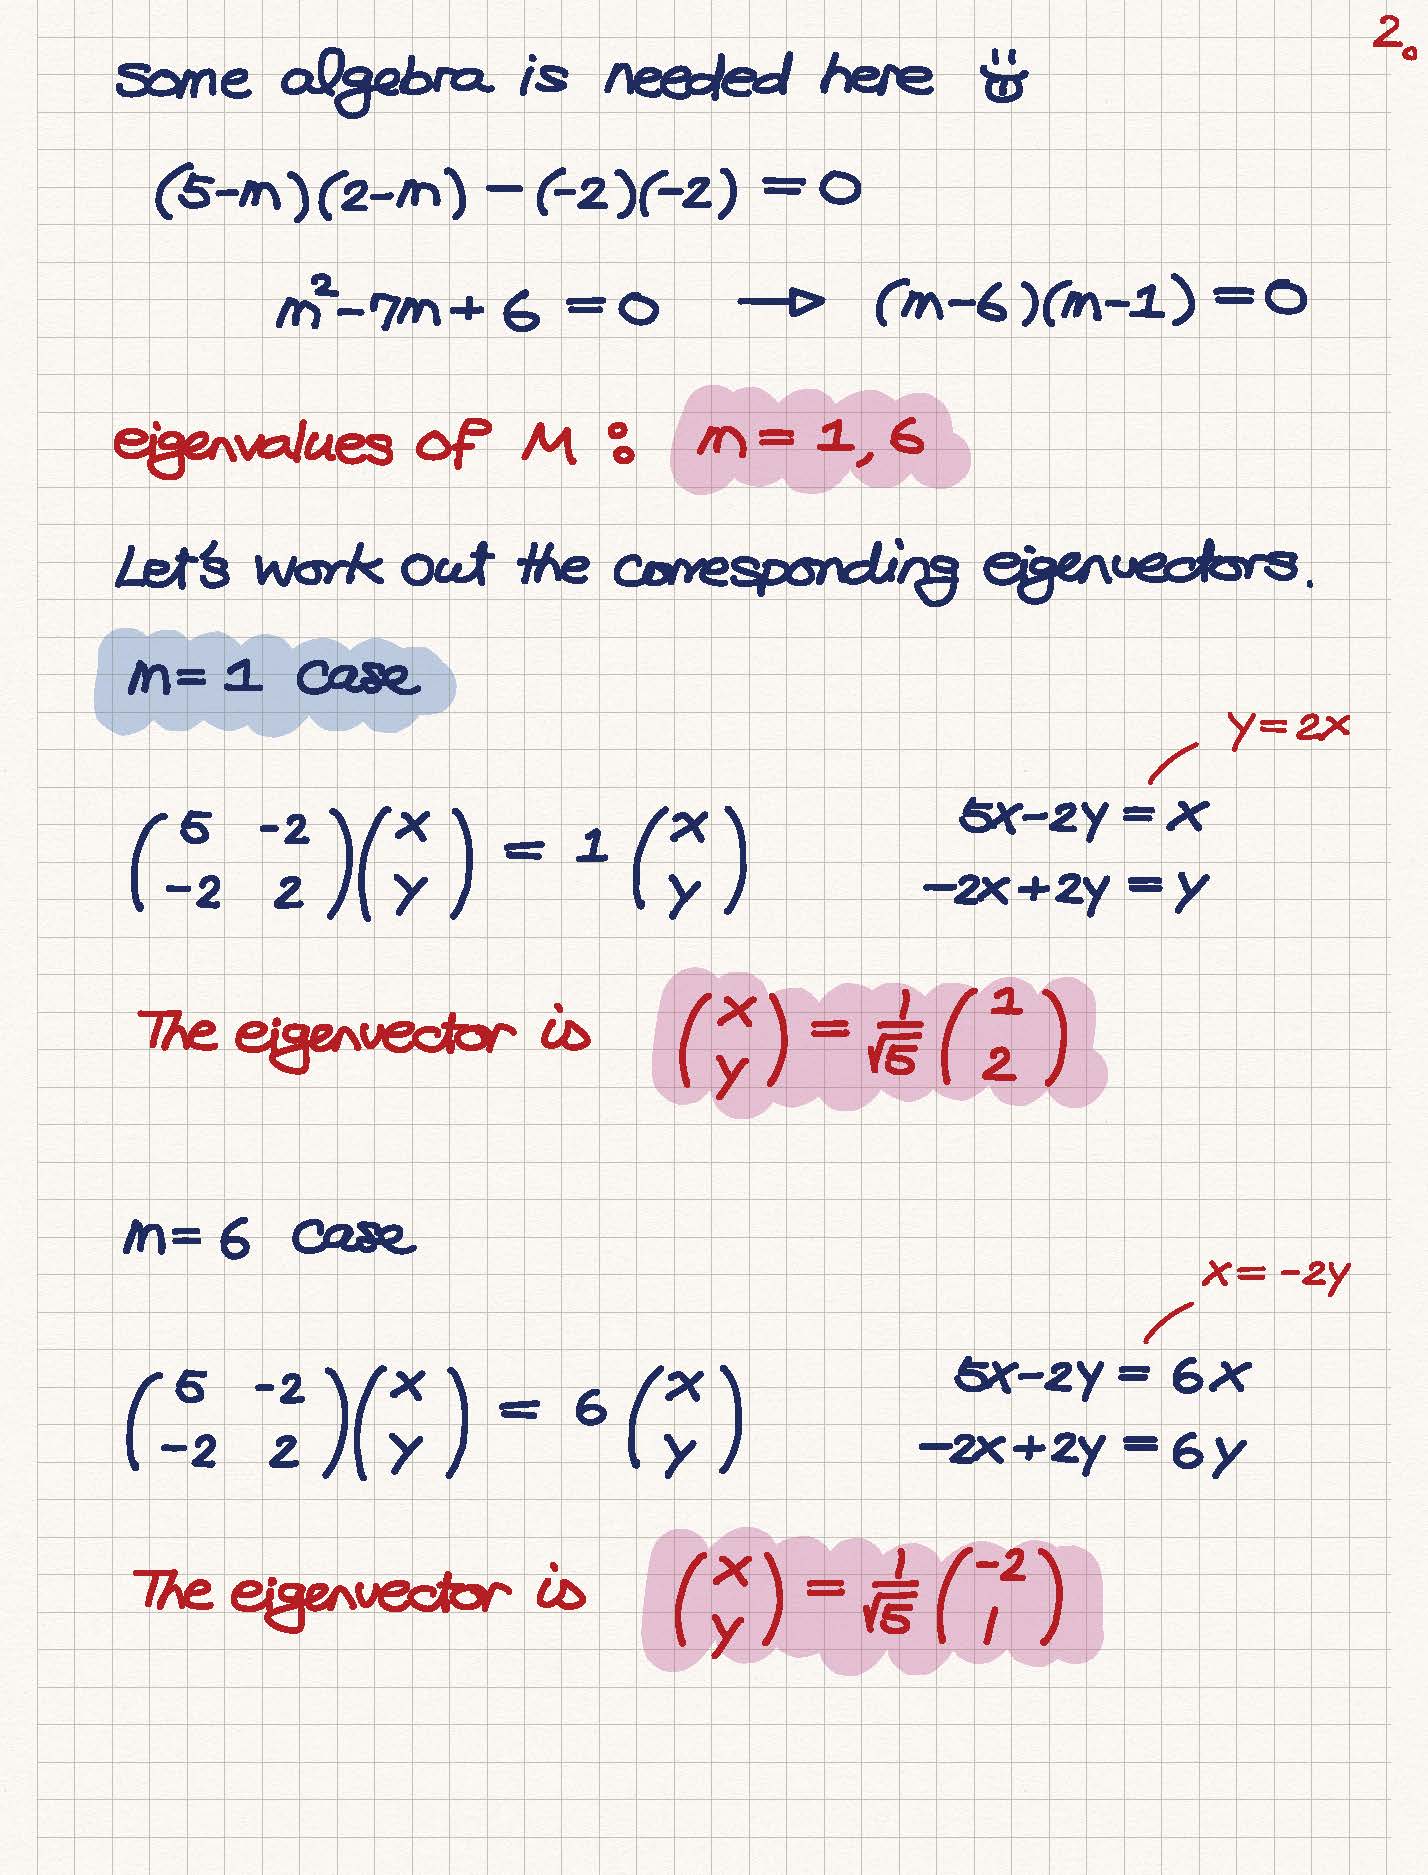 2.
Some algebra is needed here
(5-m)(2-m) - (-2)(-2) = 0
m² - 7m + 6 = 0 → (m-6)(m-1) = 0
eigenvalues of M : m = 1, 6
Let's work out the corresponding eigenvectors.
m = 1 case
y = 2x
( 5 -2 ) ( x ) = 1 ( x ) 5x - 2y = x
( -2 2 ) ( y ) ( y ) -2x + 2y = y
The eigenvector is ( x y ) = 1/√5 ( 1 2 )
m = 6 case
x = -2y
( 5 -2 ) ( x ) = 6 ( x ) 5x - 2y = 6x
( -2 2 ) ( y ) ( y ) -2x + 2y = 6y
The eigenvector is ( x y ) = 1/√5 ( -2 1 )